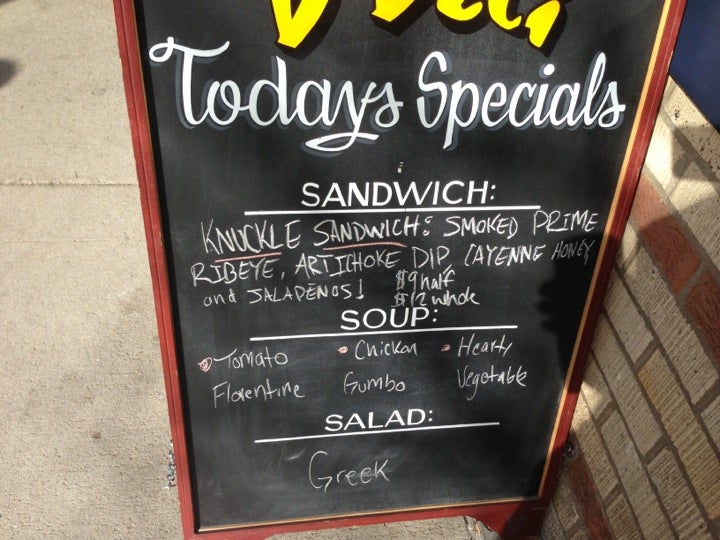 Deli
Todays Specials
SANDWICH:
KNUCKLE SANDWICH: SMOKED PRIME
RIBEYE, ARTICHOKE DIP, CAYENNE HONEY
and JALAPENOS! $9 half
$12 whole
SOUP:
Tomato Chicken Hearty
Florentine Gumbo Vegetable
SALAD:
Greek